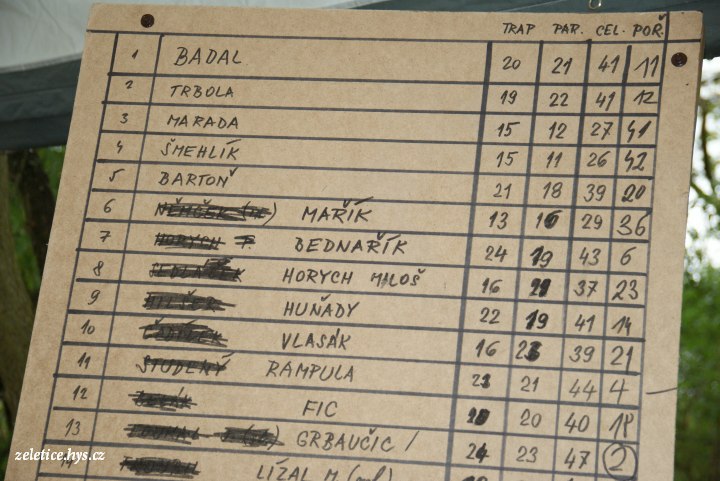 TRAP PAR. CEL. POŘ.
1 BADAL 20 21 41 11
2 TRBOLA 19 22 41 12
3 MARADA 15 12 27 41
4 ŠMEHLÍK 15 11 26 42
5 BARTOŇ 21 18 39 20
6 MAŘÍK 13 16 29 36
7 BEDNAŘÍK 24 19 43 6
8 HORYCH MILOŠ 16 21 37 23
9 HUŇADY 22 19 41 14
10 VLASÁK 16 23 39 21
11 STUDENÝ RAMPULA 23 21 44 4
12 FIC 20 40 18
13 GRBAUČIC / 24 23 47 2
14 LÍZAL M
zeletice.hys.cz